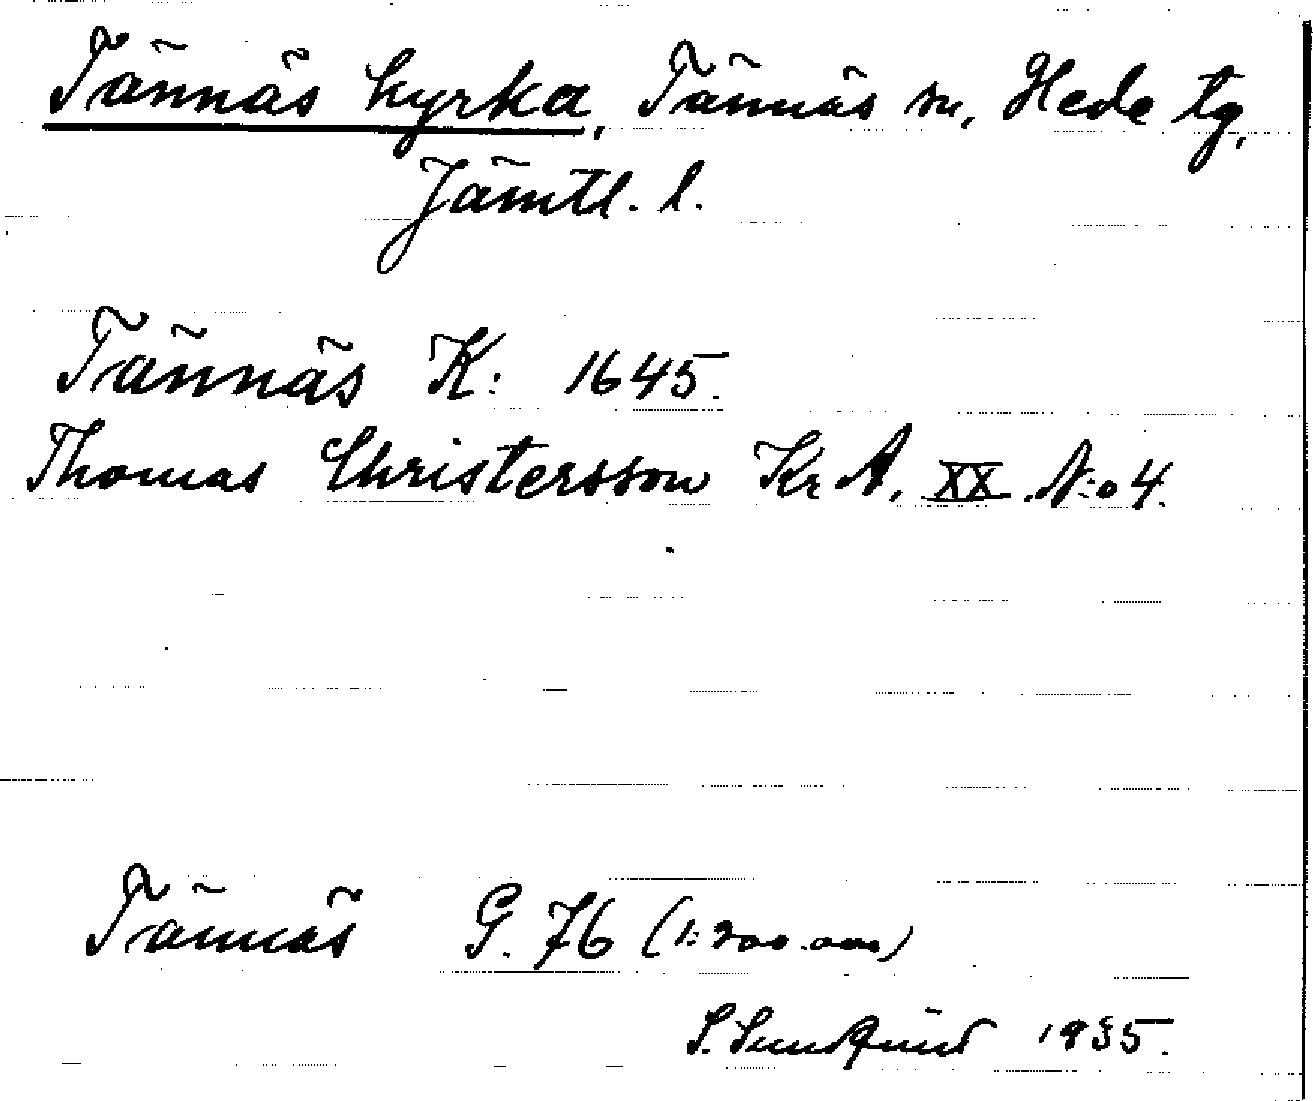 Tännäs kyrka, Tännäs sn, Hede tg,
Jämtl. l.
Tännäs K: 1645.
Thomas Christersson Kr A, XX N:o 4.
Tännäs G. 76 (1:200.000)
S. Sundqvist 1935.